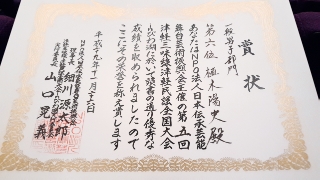 賞状
一般男子部門
第六位 植木陽史殿
あなたはNPO法人日本伝承芸能
舞台芸術振興会主催の第五回
津軽三味線津軽民謡全国大会
inびわ湖に於いて頭書の通り優秀な
成績を収められましたので
ここにその栄誉を称え賞します
平成十九年十一月二十五日
細川源太郎
山口晃義